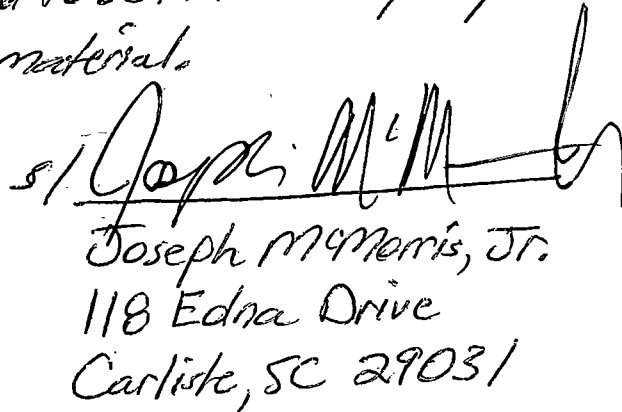 material.
s/ Joseph McM
Joseph McMorris, Jr.
118 Edna Drive
Carlisle, SC 29031